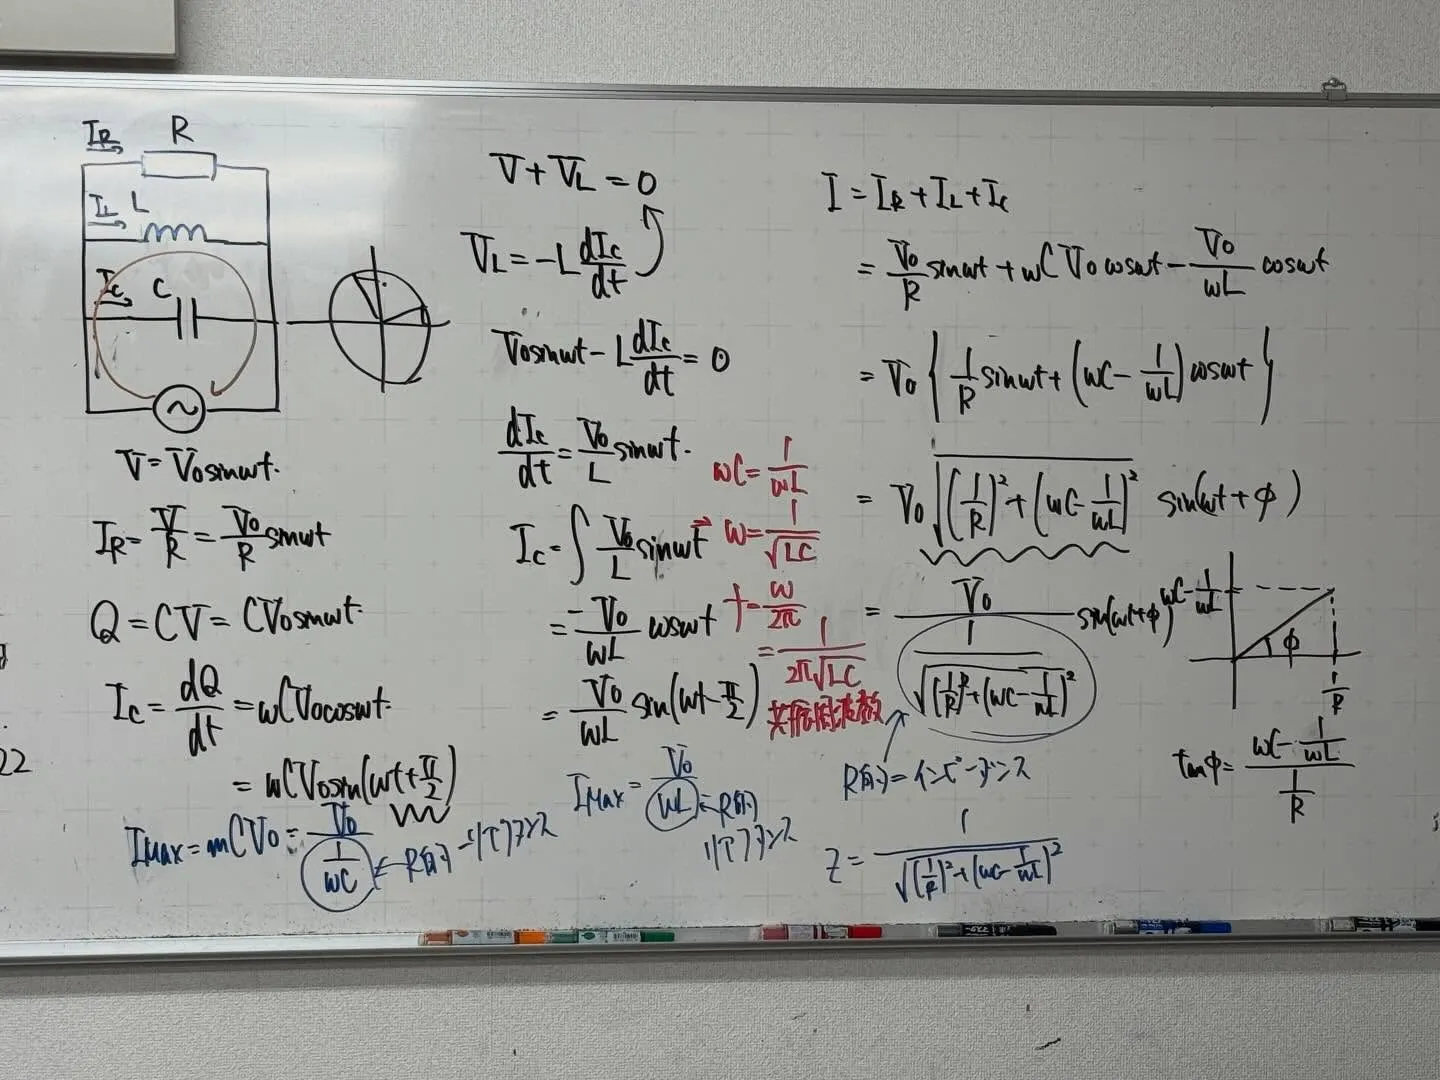 I_R R
I_L L
I_C C
V = V₀sinωt.
I_R = V/R = V₀/R sinωt
Q = CV = CV₀sinωt.
I_C = dQ/dt = ωCV₀cosωt.
= ωCV₀sin(ωt+π/2)
I_Max = ωCV₀ = V₀/(1/ωC) ← R的 リアクタンス
22
V + V_L = 0
V_L = -L dI_C/dt
V₀sinωt - L dI_C/dt = 0
dI_C/dt = V₀/L sinωt.
I_C = ∫ V₀/L sinωt
= -V₀/ωL cosωt
= V₀/ωL sin(ωt-π/2)
I_Max = V₀/ωL ← R的
リアクタンス
ωC = 1/ωL
ω = 1/√LC
f = ω/2π
= 1/2π√LC
共振周波数
I = I_R + I_L + I_C
= V₀/R sinωt + ωCV₀cosωt - V₀/ωL cosωt
= V₀{1/R sinωt + (ωC - 1/ωL)cosωt}
= V₀√((1/R)² + (ωC - 1/ωL)²) sin(ωt + φ)
= V₀/(1/√((1/R)² + (ωC - 1/ωL)²)) sin(ωt+φ)
R的 = インピーダンス
Z = 1/√((1/R)² + (ωC - 1/ωL)²)
ωC - 1/ωL
φ
1/R
tanφ = (ωC - 1/ωL)/(1/R)